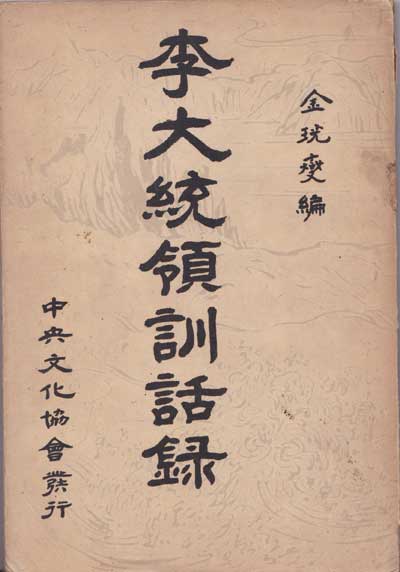 金珖燮編
李大統領訓話録
中央文化協會發行